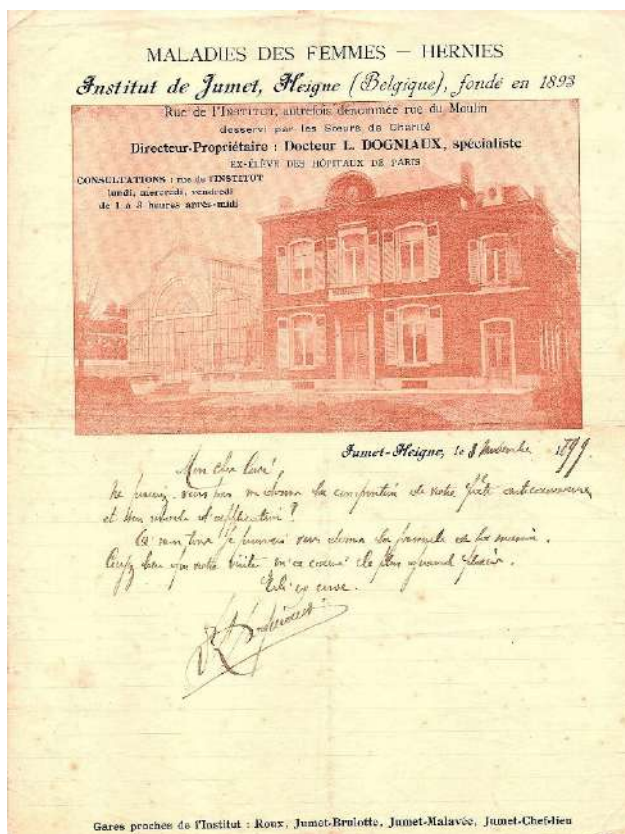 MALADIES DES FEMMES — HERNIES
Institut de Jumet, Heigne (Belgique), fondé en 1893
Rue de l'INSTITUT, autrefois dénommée rue du Moulin
desservi par les Sœurs de Charité
Directeur-Propriétaire : Docteur L. DOGNIAUX, spécialiste
EX-ÉLÈVE DES HÔPITAUX DE PARIS
CONSULTATIONS : rue de l'INSTITUT
lundi, mercredi, vendredi
de 1 à 3 heures après-midi
Jumet-Heigne, le 3 1899
Mon cher
vous pas me donner la composition de votre pâte
et son mode d'application ?
je vous donner la formule
que votre visite m'a causé le plus grand plaisir.
Gares proches de l'Institut : Roux, Jumet-Brulotte, Jumet-Malavée, Jumet-Chef-lieu